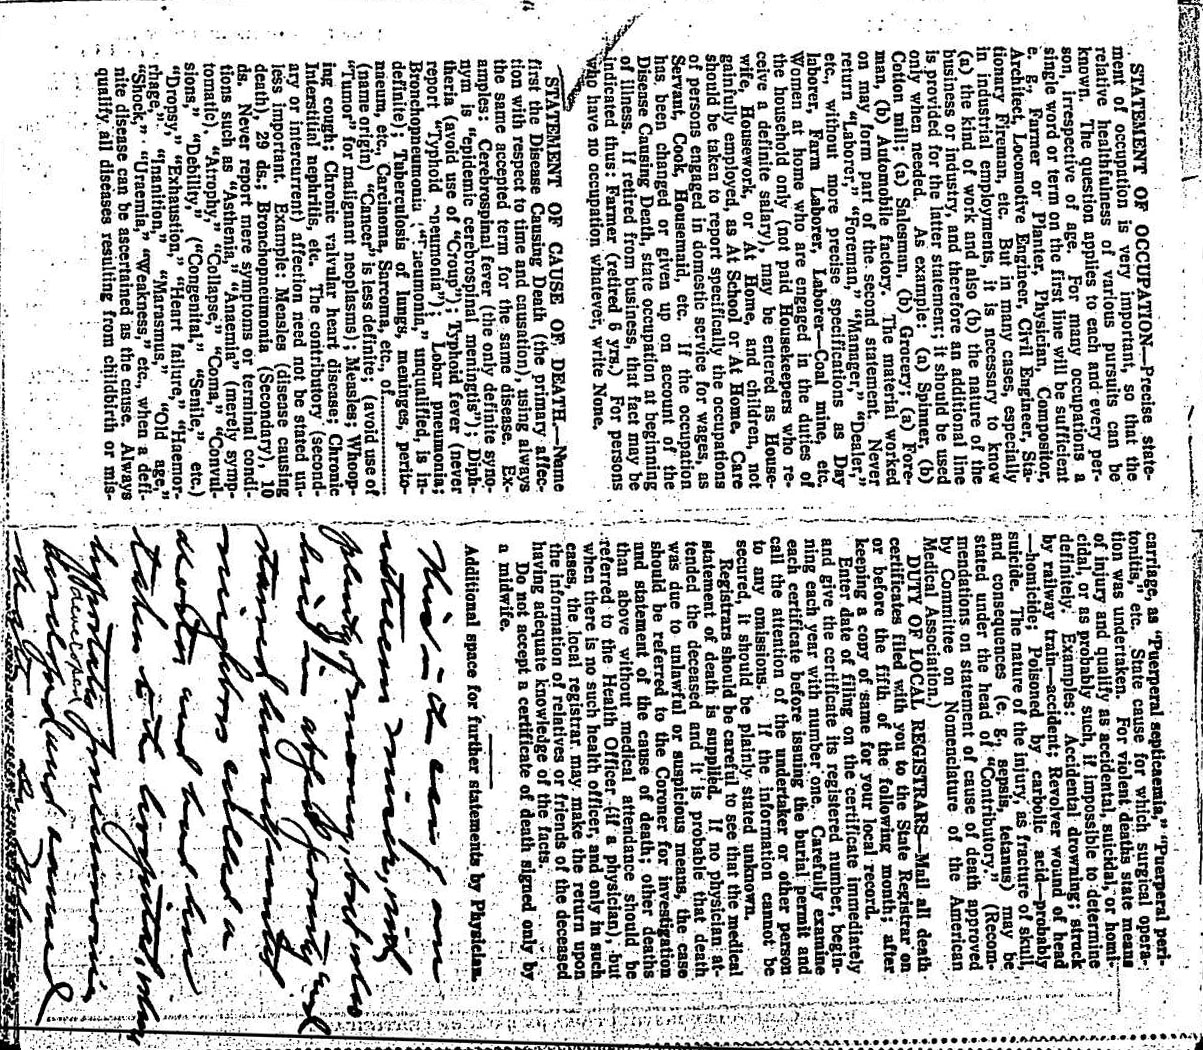 STATEMENT OF OCCUPATION—Precise state-
ment of occupation is very important, so that the
relative healthfulness of various pursuits can be
known. The question applies to each and every per-
son, irrespective of age. For many occupations a
single word or term on the first line will be sufficient
e. g., Farmer or Planter, Physician, Compositor,
Architect, Locomotive Engineer, Civil Engineer, Sta-
tionary Fireman, etc. But in many cases, especially
in industrial employments, it is necessary to know
(a) the kind of work and also (b) the nature of the
business or industry, and therefore an additional line
is provided for the latter statement; it should be used
only when needed. As example: (a) Spinner, (b)
Cotton mill; (a) Salesman, (b) Grocery; (a) Fore-
man, (b) Automobile factory. The material worked
on may form part of the second statement. Never
return "Laborer," "Foreman," "Manager," "Dealer,"
etc., without more precise specifications as Day
laborer, Farm Laborer, Laborer—Coal mine, etc.
Women at home who are engaged in the duties of
the household only (not paid Housekeepers who re-
ceive a definite salary), may be entered as House-
wife, Housework, or At Home, and children, not
gainfully employed, as At School or At Home. Care
should be taken to report specifically the occupations
of persons engaged in domestic service for wages, as
Servant, Cook, Housemaid, etc. If the occupation
has been changed or given up on account of the
Disease Causing Death, state occupation at beginning
of illness. If retired from business, that fact may be
indicated thus: Farmer (retired 6 yrs.) For persons
who have no occupation whatever, write None.
STATEMENT OF CAUSE OF DEATH.—Name
first the Disease Causing Death (the primary affec-
tion with respect to time and causation), using always
the same accepted term for the same disease. Ex-
amples: Cerebrospinal fever (the only definite syno-
nym is "epidemic cerebrospinal meningitis"); Diph-
theria (avoid use of "Croup"); Typhoid fever (never
report "Typhoid pneumonia"); Lobar pneumonia;
Bronchopneumonia ("Pneumonia," unqualified, is in-
definite); Tuberculosis of lungs, meninges, perito-
nneum, etc., Carcinoma, Sarcoma, etc., of
(name origin) "Cancer" is less definite; (avoid use of
"Tumor" for malignant neoplasms); Measles; Whoop-
ing cough; Chronic valvular heart disease; Chronic
Interstitial nephritis, etc. The contributory (second-
ary or intercurrent) affection need not be stated un-
less important. Example: Measles (disease causing
death), 29 ds.; Bronchopneumonia (Secondary), 10
ds. Never report mere symptoms or terminal condi-
tions such as "Asthenia," "Anaemia" (merely symp-
tomatic), "Atrophy," "Collapse," "Coma," "Convul-
sions," "Debility," ("Congenital," "Senile," etc.)
"Dropsy," "Exhaustion," "Heart failure," "Haemor-
rhage," "Inanition," "Marasmus," "Old age,"
"Shock," "Uraemia," "Weakness," etc., when a defi-
nite disease can be ascertained as the cause. Always
qualify all diseases resulting from childbirth or mis-
carriage, as "Puerperal septicaemia," "Puerperal peri-
tonitis," etc. State cause for which surgical opera-
tion was undertaken. For violent deaths state means
of injury and qualify as accidental, suicidal, or homi-
cidal, or as probably such, if impossible to determine
definitely. Examples: Accidental drowning; struck
by railway train—accident; Revolver wound of head
—homicide; Poisoned by carbolic acid—probably
suicide. The nature of the injury, as fracture of skull,
and consequences (e. g., sepsis, tetanus) may be
stated under the head of "Contributory." (Recom-
mendations on statement of cause of death approved
by Committee on Nomenclature of the American
Medical Association.)
DUTY OF LOCAL REGISTRARS—Mail all death
certificates filed with you to the State Registrar on
or before the fifth of the following month; after
keeping a copy of same for your local record.
Enter date of filing on the certificate immediately
and give the certificate its registered number, begin-
ning each year with number one. Carefully examine
each certificate before issuing the burial permit and
call the attention of the undertaker or other person
to any omissions. If the information cannot be
secured, it should be plainly stated unknown.
Registrars should be careful to see that the medical
statement of death is supplied. If no physician at-
tended the deceased and it is probable that death
was due to unlawful or suspicious means, the case
should be referred to the Coroner for investigation
and statement of the cause of death; other deaths
than above without medical attendance should be
referred to the Health Officer (if a physician), but
when there is no such health officer, and only in such
cases, the local registrar may make the return upon
the information of relatives or friends of the deceased
having adequate knowledge of the facts.
Do not accept a certificate of death signed only by
a midwife.
Additional space for further statements by Physician.
This is a case of an
miser, with
plenty of money, but who
lived in abject poverty and
starved himself until
neighbors called a
doctor and had him
taken to the hospital, where
hypostatic pneumonia
developed and caused
death